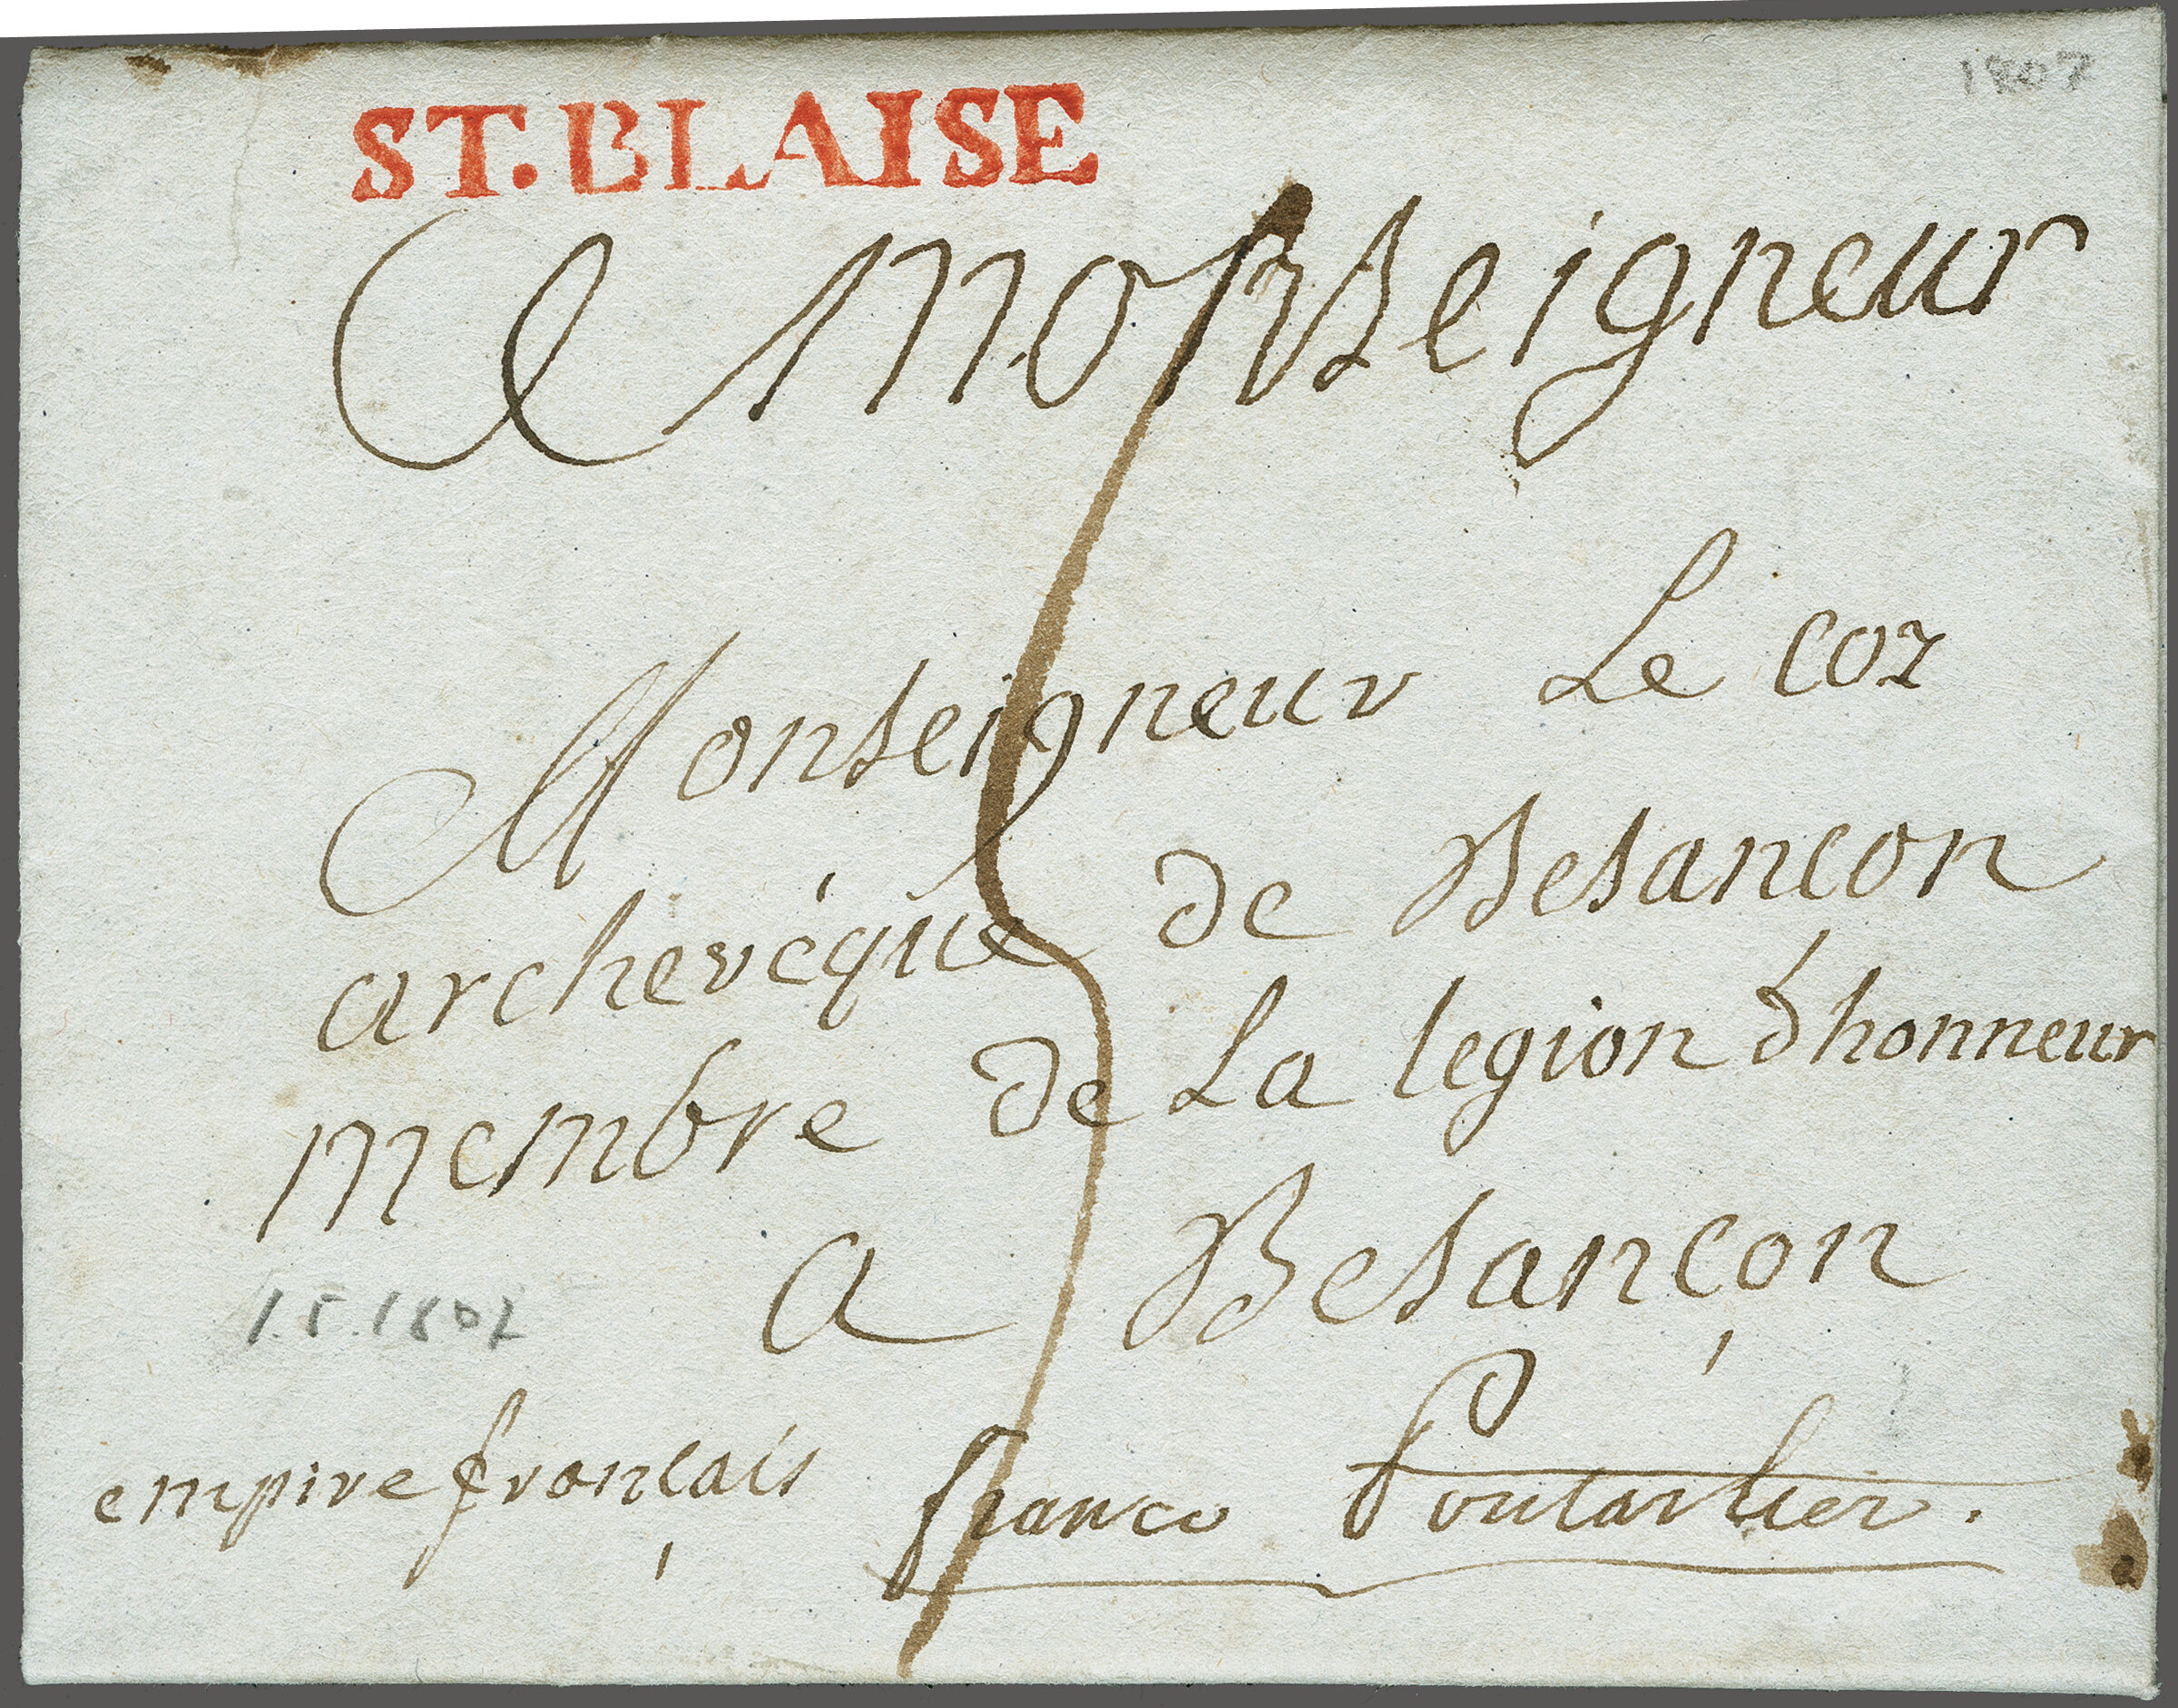 ST. BLAISE
1807
A Monseigneur
Monseigneur Le coz
archevéque de Besançon
membre de La legion d'honneur
a Besançon
1.5.1807
empire françáis franco Pontarlier.